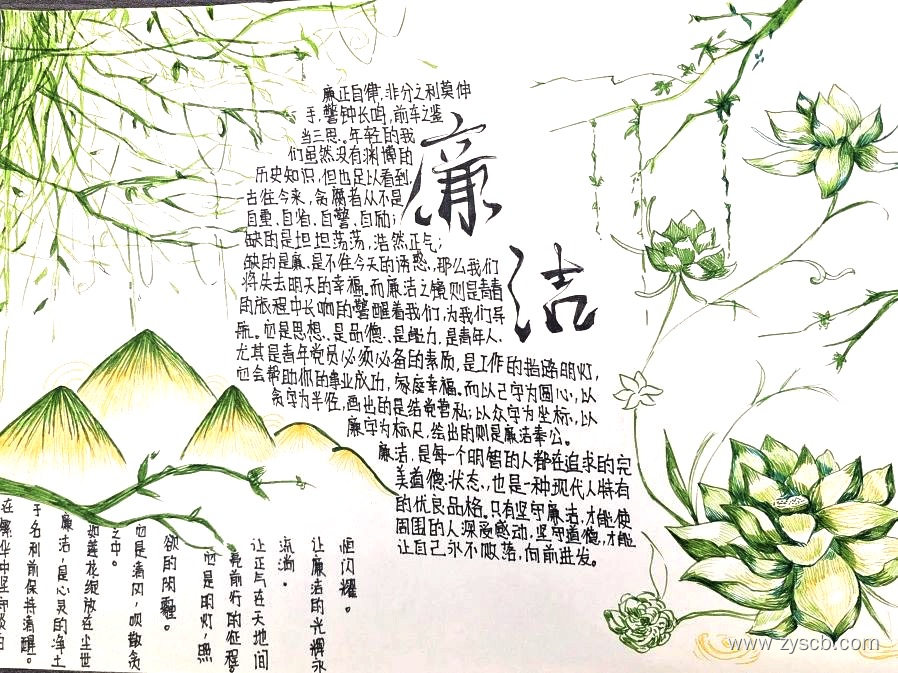 廉洁
廉正自律，非分之利莫伸
手，警钟长鸣，前车之鉴
当三思。年轻的我
们虽然没有渊博的
历史知识，但也足以看到
古往今来，贪腐者从不是
自重、自省、自警、自励；
缺的是坦坦荡荡，浩然正气；
缺的是廉，是不住今天的诱惑，那么我们
将失去明天的幸福。而廉洁之镜则是青春
的旅程中长鸣的警醒着我们，为我们导
航。也是思想、是品德、是能力，是青年人，
尤其是青年党员必须必备的素质，是工作的指路明灯，
也会帮助你的事业成功，家庭幸福。而以己字为圆心，以
贪字为半径，画出的是结党营私；以众字为坐标，以
廉字为标尺，绘出的则是廉洁奉公。
廉洁，是每个明智的人都在追求的完
美道德状态，也是一种现代人特有
的优良品格。只有坚守廉洁，才能使
周围的人深受感动，坚守道德，才能
让自己永不败落，向前进发。
恒闪耀。
让廉洁的光辉永
流淌。
让正气在天地间
亮前行的征程
也是明灯，照
欲的阴霾。
也是清风，吹散贪
之中。
如莲花绽放在尘世
廉洁，是心灵的净土
于名利前保持清醒。
在繁华中坚守淡泊
www.zyscb.com